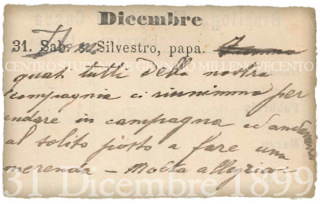 Dicembre
31. Sab. s. Silvestro, papa.
CENTRO STUDI GENNAIO MILLENOVECENTO
quasi tutti della nostra
compagnia ci riunimmo per
andare in campagna ed andammo
al solito posto a fare una
merenda – Molta allegria.
31 Dicembre 1899